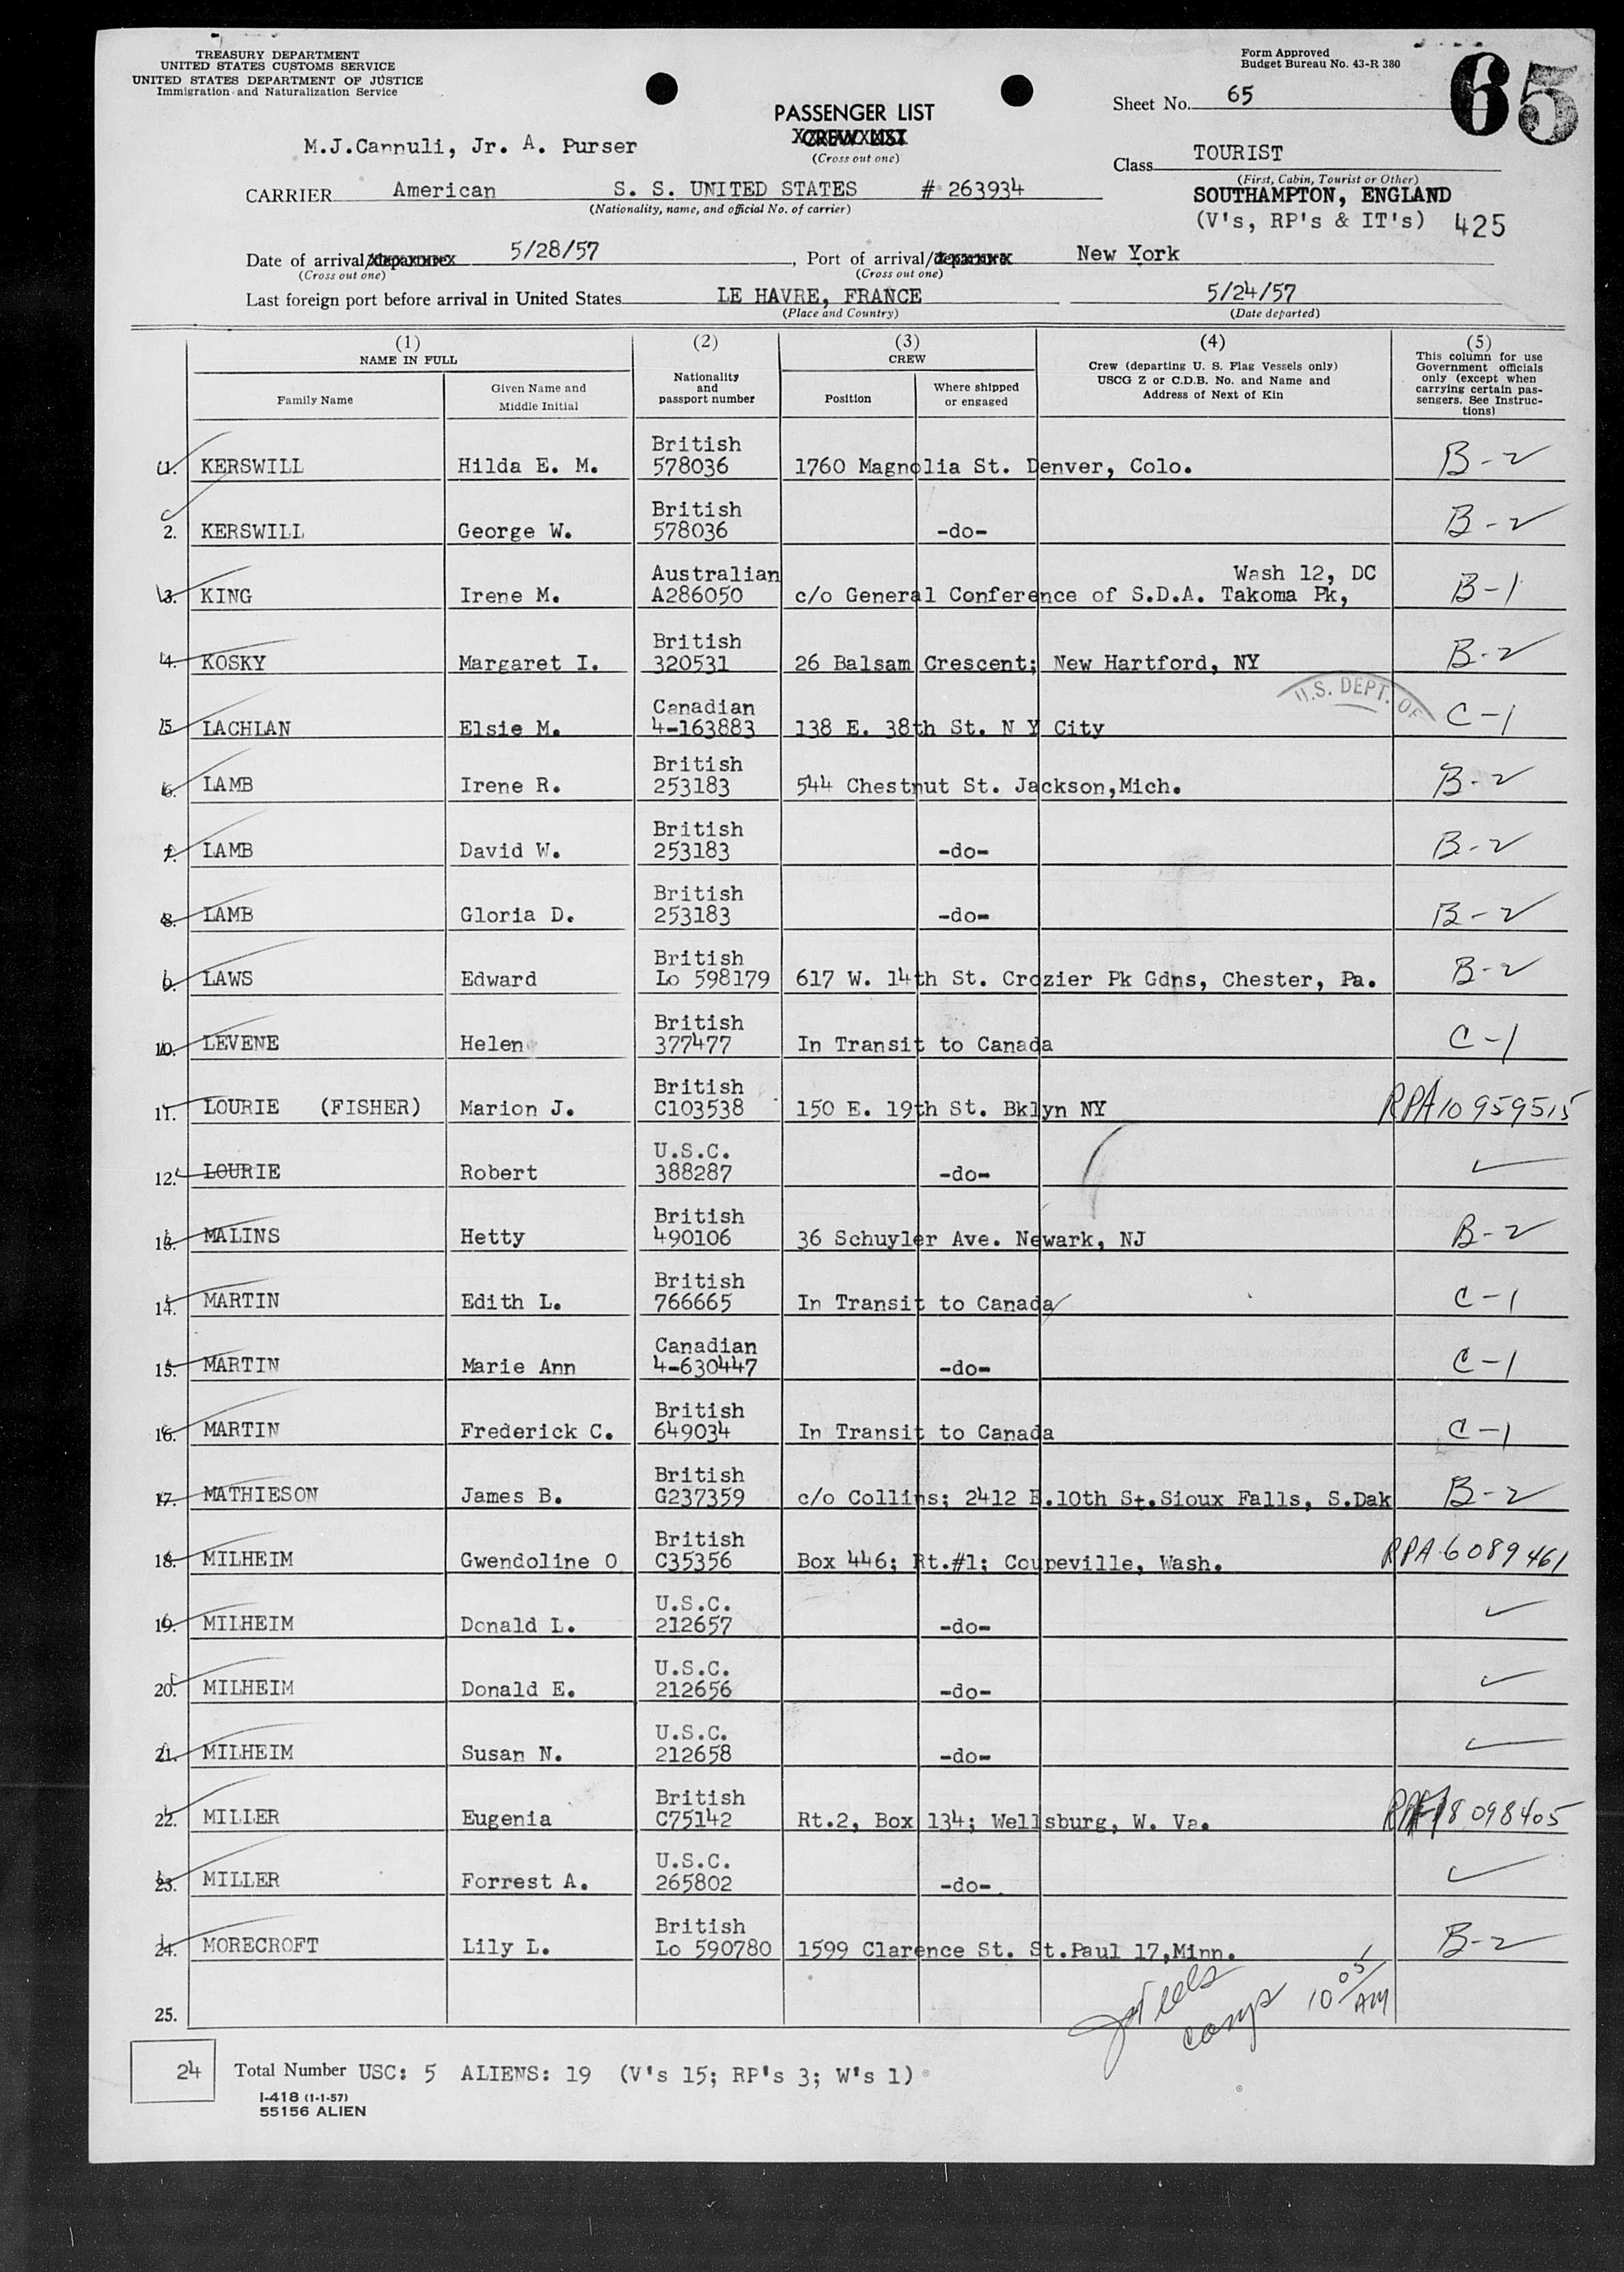 TREASURY DEPARTMENT
UNITED STATES CUSTOMS SERVICE
UNITED STATES DEPARTMENT OF JUSTICE
Immigration and Naturalization Service
Form Approved
Budget Bureau No. 43-R 380
65
Sheet No. 65
PASSENGER LIST
CREW LIST
(Cross out one)
M.J.Cannuli, Jr. A. Purser
Class TOURIST
(First, Cabin, Tourist or Other)
CARRIER American S. S. UNITED STATES # 263934
(Nationality, name, and official No. of carrier)
SOUTHAMPTON, ENGLAND
(V's, RP's & IT's) 425
Date of arrival/departure 5/28/57, Port of arrival/departure New York
(Cross out one) (Cross out one)
Last foreign port before arrival in United States LE HAVRE, FRANCE 5/24/57
(Place and Country) (Date departed)
(1) NAME IN FULL
Family Name
Given Name and Middle Initial
(2) Nationality and passport number
(3) CREW
Position
Where shipped or engaged
(4) Crew (departing U. S. Flag Vessels only) USCG Z or C.D.B. No. and Name and Address of Next of Kin
(5) This column for use Government officials only (except when carrying certain passengers. See Instructions)
1. KERSWILL Hilda E. M. British 578036 1760 Magnolia St. Denver, Colo. B-2
2. KERSWILL George W. British 578036 -do- B-2
3. KING Irene M. Australian A286050 c/o General Conference of S.D.A. Takoma Pk, Wash 12, DC B-1
4. KOSKY Margaret I. British 320531 26 Balsam Crescent; New Hartford, NY B-2
U.S. DEPT. OF
5. LACHLAN Elsie M. Canadian 4-163883 138 E. 38th St. N Y City C-1
6. LAMB Irene R. British 253183 544 Chestnut St. Jackson,Mich. B-2
7. LAMB David W. British 253183 -do- B-2
8. LAMB Gloria D. British 253183 -do- B-2
9. LAWS Edward British Lo 598179 617 W. 14th St. Crozier Pk Gdns, Chester, Pa. B-2
10. LEVENE Helen British 377477 In Transit to Canada C-1
11. LOURIE (FISHER) Marion J. British C103538 150 E. 19th St. Bklyn NY RPA10 959515
12. LOURIE Robert U.S.C. 388287 -do-
13. MALINS Hetty British 490106 36 Schuyler Ave. Newark, NJ B-2
14. MARTIN Edith L. British 766665 In Transit to Canada C-1
15. MARTIN Marie Ann Canadian 4-630447 -do- C-1
16. MARTIN Frederick C. British 649034 In Transit to Canada C-1
17. MATHIESON James B. British G237359 c/o Collins; 2412 E.10th St.Sioux Falls, S.Dak B-2
18. MILHEIM Gwendoline O British C35356 Box 446; Rt.#1; Coupeville, Wash. RPA 6089461
19. MILHEIM Donald L. U.S.C. 212657 -do-
20. MILHEIM Donald E. U.S.C. 212656 -do-
21. MILHEIM Susan N. U.S.C. 212658 -do-
22. MILLER Eugenia British C75142 Rt.2, Box 134; Wellsburg, W. Va. 8 098405
23. MILLER Forrest A. U.S.C. 265802 -do-
24. MORECROFT Lily L. British Lo 590780 1599 Clarence St. St.Paul 17,Minn. B-2
25.
10 05 AM
24 Total Number USC: 5 ALIENS: 19 (V's 15; RP's 3; W's 1)
I-418 (1-1-57)
55156 ALIEN